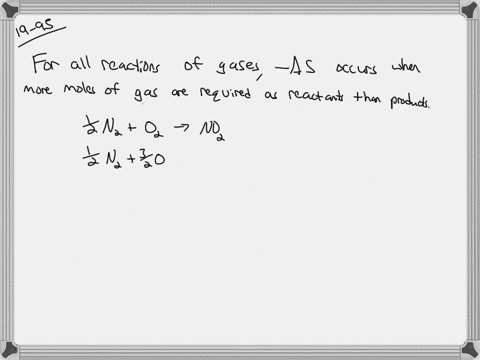 19-95
For all reactions of gases, -ΔS occurs when
more moles of gas are required as reactants than products.
½ N₂ + O₂ → NO₂
½ N₂ + 3/2 O